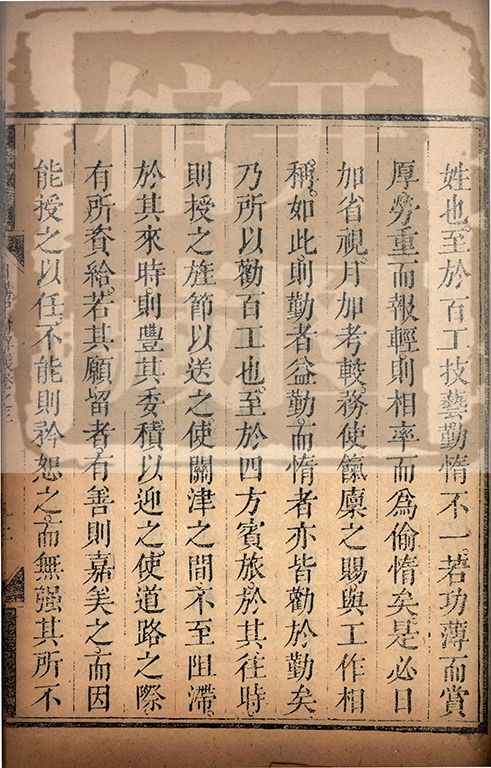 姓也至於百工技藝勤惰不一若功薄而賞
厚勞重而報輕則相率而為偷惰矣是必日
加省視月加考較務使餼廩之賜與工作相
稱如此則勤者益勤而惰者亦皆勸於勤矣
乃所以勸百工也至於四方賓旅於其往時
則授之旌節以送之使關津之間不至阻滯
於其來時則豐其委積以迎之使道路之際
有所資給若其願留者有善則嘉美之而因
能授之以任不能則矜恕之而無强其所不